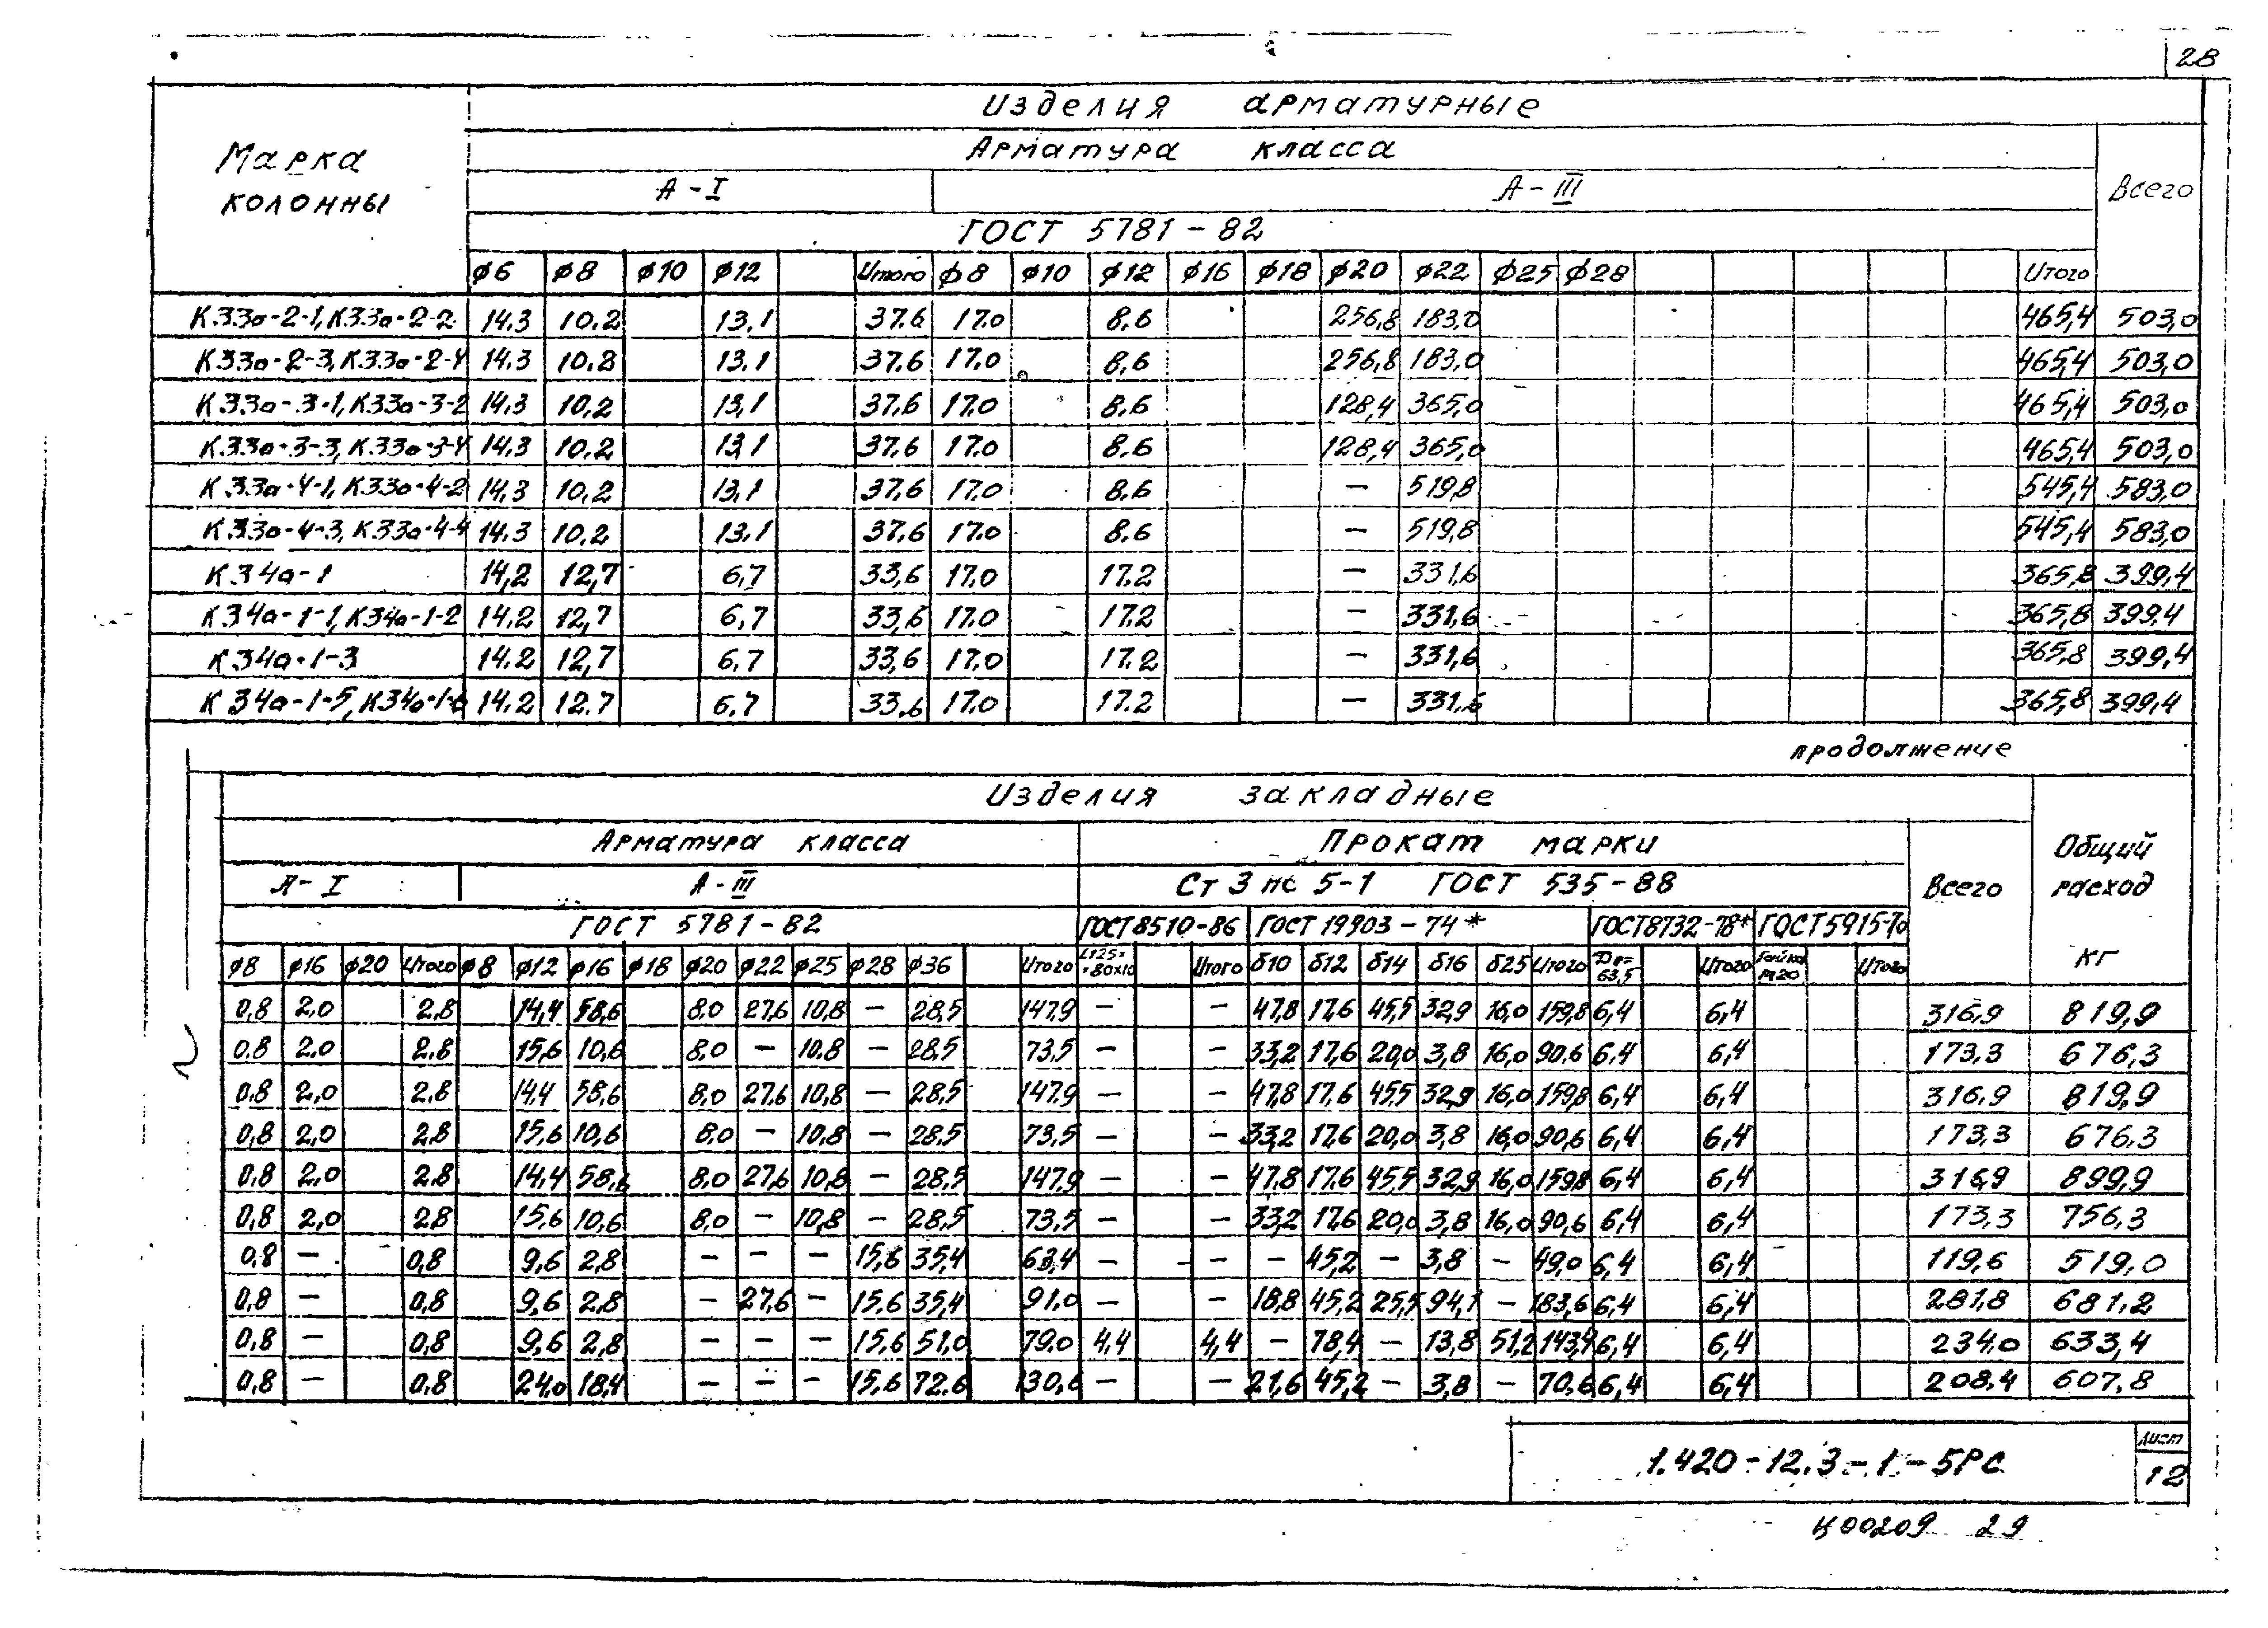 28
Изделия арматурные
Марка колонны
Арматура класса
Всего
А-I А-III
ГОСТ 5781-82
ф6 ф8 ф10 ф12 Итого ф8 ф10 ф12 ф16 ф18 ф20 ф22 ф25 ф28 Итого
К33а-2-1, К33а-2-2 14.3 10.2 13.1 37.6 17.0 8.6 256,8 183,0 465,4 503,0
К33а-2-3, К33а-2-4 14.3 10.2 13.1 37.6 17.0 8,6 256,8 183,0 465,4 503,0
К33а-3-1, К33а-3-2 14.3 10,2 13,1 37.6 17.0 8.6 128,4 365,0 465,4 503,0
К33а-3-3, К33а-3-4 14.3 10.2 13,1 37.6 17.0 8.6 128,4 365,0 465,4 503,0
К33а-4-1, К33а-4-2 14.3 10,2 13,1 37.6 17.0 8.6 — 519,8 545,4 583,0
К33а-4-3, К33а-4-4 14.3 10.2 13.1 37.6 17.0 8.6 — 519,8 545,4 583,0
К34а-1 14,2 12,7 6,7 33,6 17.0 17.2 — 331,6 365,8 399,4
К34а-1-1, К34а-1-2 14.2 12,7 6,7 33,6 17.0 17.2 — 331,6 365,8 399,4
К34а-1-3 14.2 12,7 6,7 33,6 17.0 17.2 — 331,6 365,8 399,4
К34а-1-5, К34а-1-6 14.2 12.7 6,7 33,6 17.0 17.2 — 331,6 365,8 399,4
продолжение
Изделия закладные
Арматура класса Прокат марки
Общий расход кг
А-I А-III Ст 3 пс 5-1 ГОСТ 535-88 Всего
ГОСТ 5781-82 ГОСТ 8510-86 ГОСТ 19903-74* ГОСТ 8732-78* ГОСТ 5915-70
ф8 ф16 ф20 Итого ф8 ф12 ф16 ф18 ф20 ф22 ф25 ф28 ф36 Итого L125××80×10 Итого δ10 δ12 δ14 δ16 δ25 Итого Dн=63,5 Итого Гайка М20 Итого
0,8 2,0 2,8 14,4 58,6 8,0 27,6 10,8 — 28,5 147,9 — — 47,8 17,6 45,5 32,9 16,0 159,8 6,4 6,4 316,9 819,9
0,8 2,0 2,8 15,6 10,6 8,0 — 10,8 — 28,5 73,5 — — 33,2 17,6 20,0 3,8 16,0 90,6 6,4 6,4 173,3 676,3
0,8 2,0 2,8 14,4 58,6 8,0 27,6 10,8 — 28,5 147,9 — — 47,8 17,6 45,5 32,9 16,0 159,8 6,4 6,4 316,9 819,9
0,8 2,0 2,8 15,6 10,6 8,0 — 10,8 — 28,5 73,5 — — 33,2 17,6 20,0 3,8 16,0 90,6 6,4 6,4 173,3 676,3
0,8 2,0 2,8 14,4 58,6 8,0 27,6 10,8 — 28,5 147,9 — — 47,8 17,6 45,5 32,9 16,0 159,8 6,4 6,4 316,9 899,9
0,8 2,0 2,8 15,6 10,6 8,0 — 10,8 — 28,5 73,5 — — 33,2 17,6 20,0 3,8 16,0 90,6 6,4 6,4 173,3 756,3
0,8 — 0,8 9,6 2,8 — — — 15,6 35,4 63,4 — — — 45,2 — 3,8 — 49,0 6,4 6,4 119,6 519,0
0,8 — 0,8 9,6 2,8 — 27,6 — 15,6 35,4 91,0 — — 18,8 45,2 25,5 94,1 — 183,6 6,4 6,4 281,8 681,2
0,8 — 0,8 9,6 2,8 — — — 15,6 51,0 79,0 4,4 4,4 — 78,4 — 13,8 51,2 143,4 6,4 6,4 234,0 633,4
0,8 — 0,8 24,0 18,4 — — — 15,6 72,6 130,6 — — 21,6 45,2 — 3,8 — 70,6 6,4 6,4 208,4 607,8
1.420-12.3-1-5РС
Лист
12
Ц00209 29